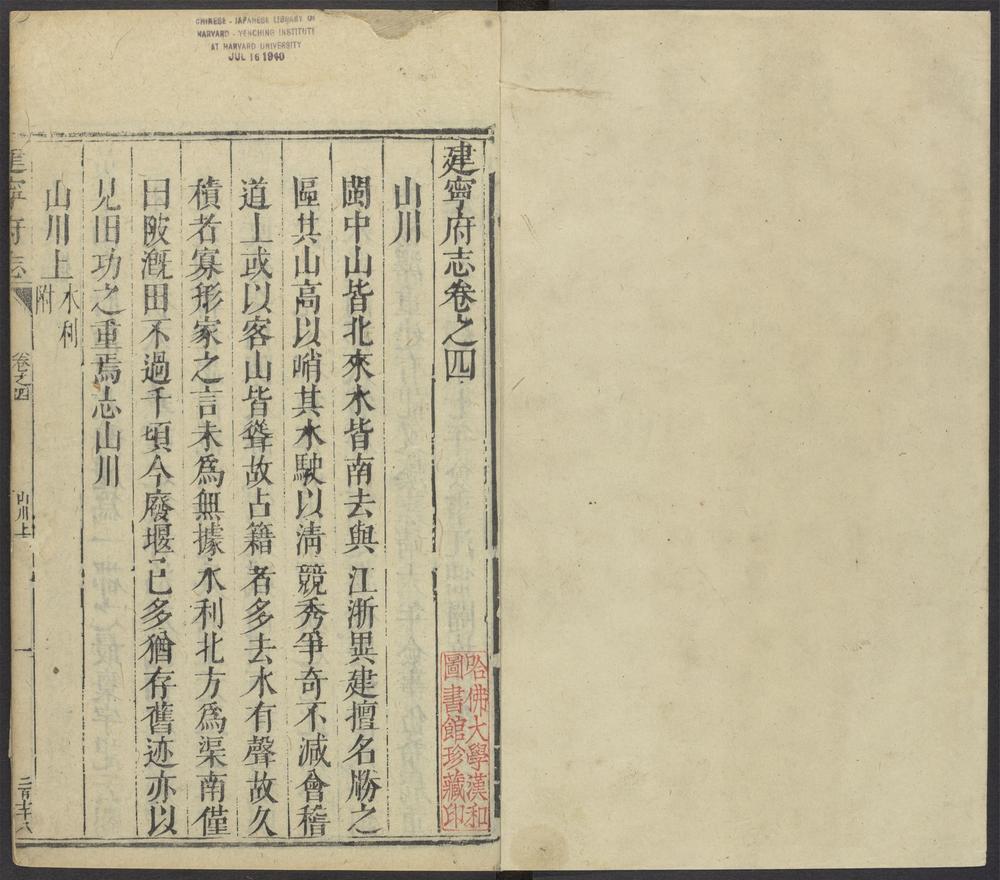 CHINESE - JAPANESE LIBRARY OF
HARVARD - YENCHING INSTITUTE
AT HARVARD UNIVERSITY
JUL 16 1940
建寧府志卷之四
山川
閩中山皆北來水皆南去與江浙異建擅名勝之
區其山高以峭其水駛以清競秀爭奇不減會稽
道上或以客山皆聳故占籍者多去水有聲故久
積者寡形家之言未爲無據水利北方爲渠南僅
曰陂漑田不過千頃今廢堰已多猶存舊迹亦以
見田功之重焉志山川
山川上水利附
建寧府志
卷之四
山川上
一
哈佛大學漢和
圖書館珍藏印